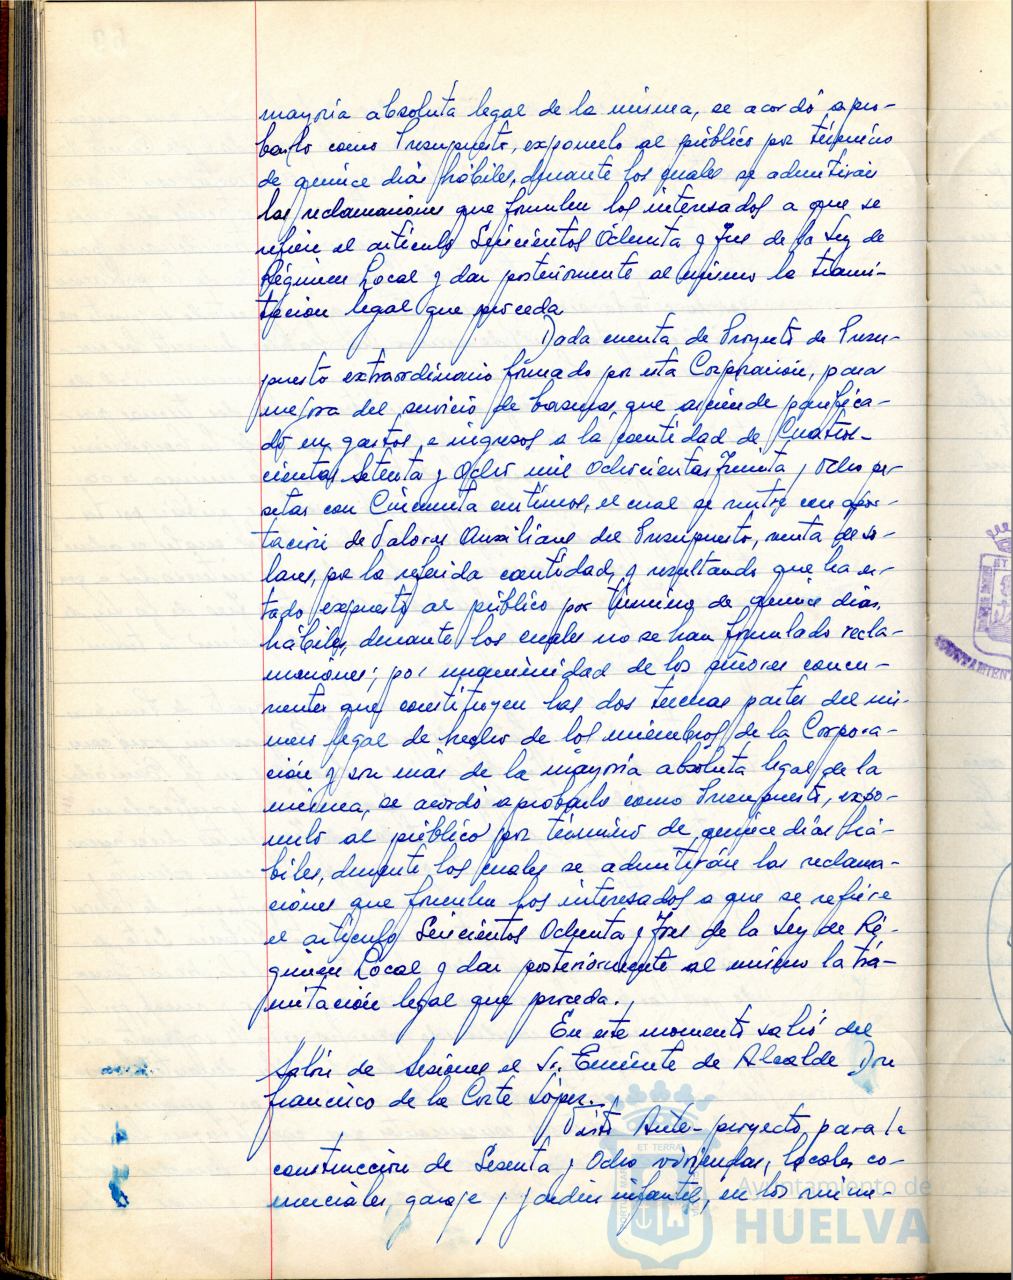 mayoría absoluta legal de la misma, se acordó apro-
barlo como Presupuesto, exponerlo al público por término
de quince días hábiles, durante los cuales se admitirán
las reclamaciones que formulen los interesados a que se
refiere el artículo Seiscientos Ochenta y Tres de la Ley de
Régimen Local y dar posteriormente al mismo la trami-
tación legal que proceda
Dada cuenta de Proyecto de Presu-
puesto extraordinario formado por esta Corporación, para
mejora del servicio de basuras, que asciende panifica-
do en gastos e ingresos a la cantidad de Cuatros-
cientas Setenta y Ocho mil Ochocientas Treinta y Ocho pe-
setas con Cincuenta céntimos, el cual se nutre con apor-
tación de Valores Auxiliares del Presupuesto, venta de so-
lares, por la referida cantidad, y resultando que ha es-
tado expuesto al público por término de quince días
hábiles, durante los cuales no se han formulado recla-
maciones; por unanimidad de los señores concu-
rrentes que constituyen las dos terceras partes del nú-
mero legal de hecho de los miembros de la Corpora-
ción y son más de la mayoría absoluta legal de la
misma, se acordó aprobarlo como Presupuesto, expo-
nerlo al público por término de quince días há-
biles, durante los cuales se admitirán las reclama-
ciones que formulen los interesados a que se refiere
el artículo Seiscientos Ochenta y Tres de la Ley de Ré-
gimen Local y dar posteriormente al mismo la tra-
mitación legal que proceda.
En este momento salió del
Salón de Sesiones el Sr. Teniente de Alcalde Don
Francisco de la Corte López.
Visto Ante-proyecto para la
construcción de Sesenta y Ocho viviendas, locales co-
merciales, garaje y jardín infantil, en los núme-
Ayuntamiento de
HUELVA